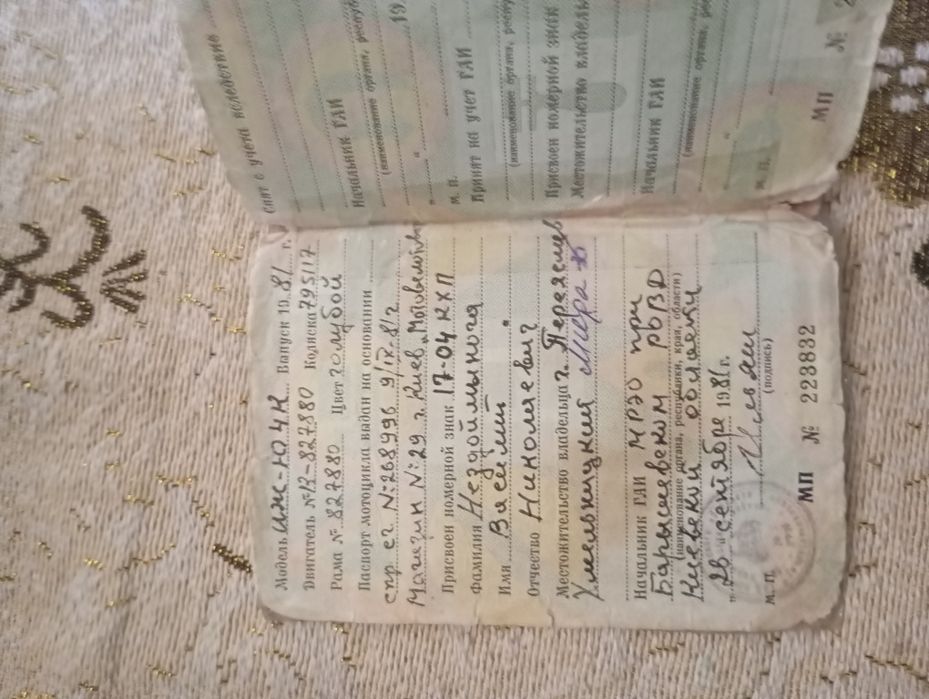 Модель ИЖ-Ю4К Выпуск 19 81 г.
Двигатель №В-827880 Коляска 795117
Рама № 827880 Цвет голубой
Паспорт мотоцикла выдан на основании
спр сг N:268996 9/IX-81г
Магазин N:29 г. Киев
Присвоен номерной знак 17-04 КХП
Фамилия Нездоймынога
Имя Василий
Отчество Николаевич
Местожительство владельца г. Переяслев
Хмельницкий
Начальник ГАИ МРЭО при
Барышевском РОВД
(наименование органа, республики, края, области)
Киевской области
" 28 " сентябре 1981 г.
М. П. (подпись)
МП № 223832
Снят с учета вследствие
Начальник ГАИ
(наименование органа, респуб
" 19
М. П.
Принят на учет ГАИ
(наименование органа, респу
Присвоен номерной знак
Местожительство владель
Начальник ГАИ
(наименование органа, рес
"
М. П.
МП №